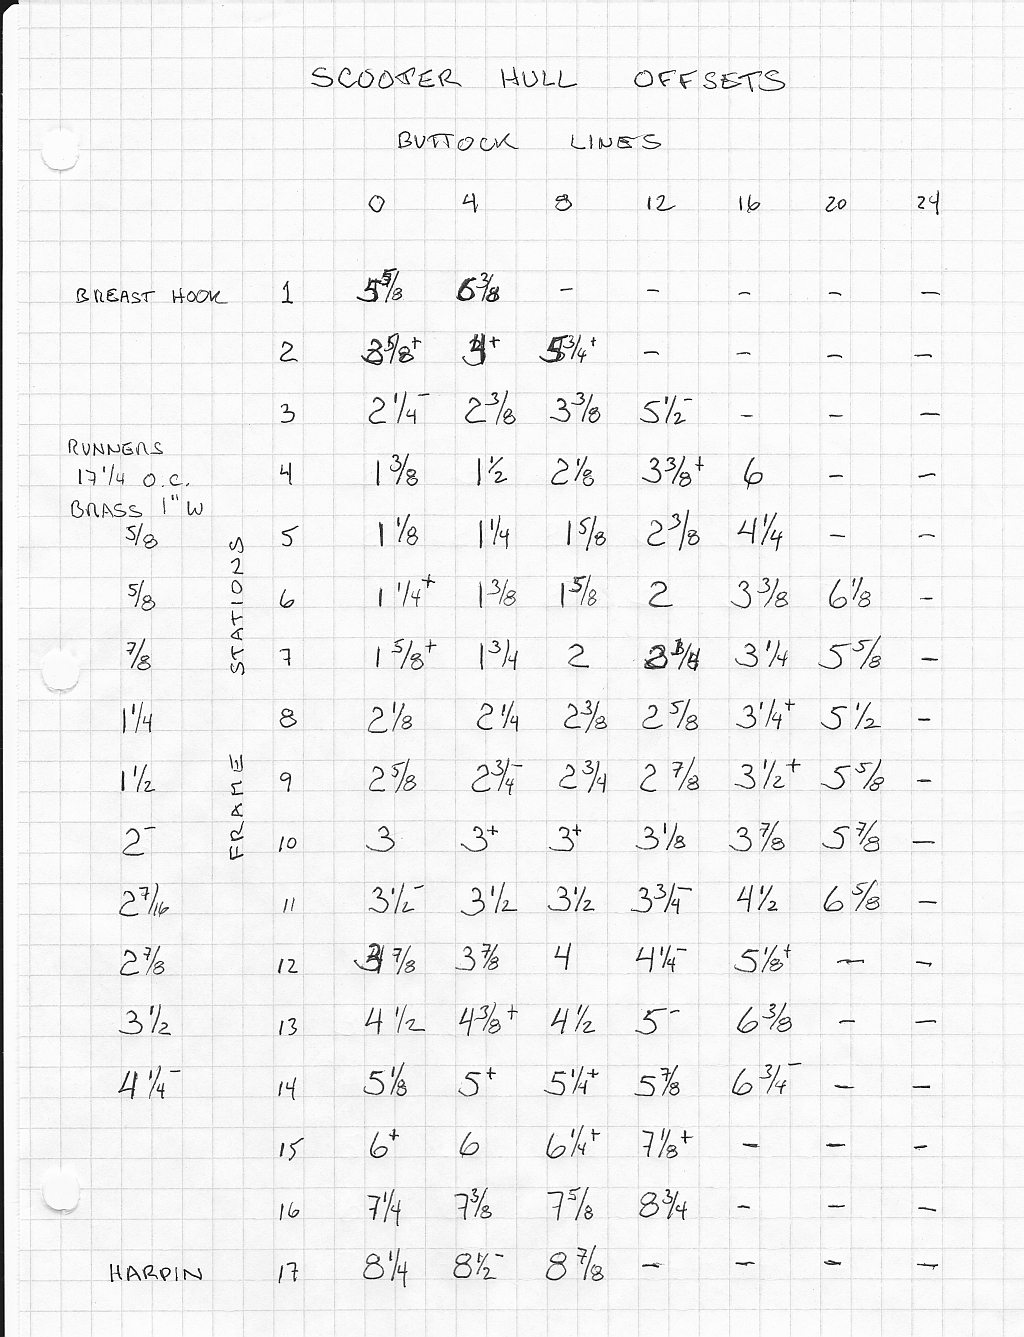 SCOOTER HULL OFFSETS
BUTTOCK LINES
0 4 8 12 16 20 24
BREAST HOOK 1 5 5/8 6 3/8 - - - - -
2 3 5/8+ 5 3/4+ - - - -
3 2 1/4- 2 3/8 3 3/8 5 1/2- - - -
RUNNERS
17 1/4 O.C. 4 1 3/8 1 1/2 2 1/8 3 3/8+ 6 - -
BRASS 1" W
5/8 5 1 1/8 1 1/4 1 5/8 2 3/8 4 1/4 - -
5/8 6 1 1/4+ 1 3/8 1 5/8 2 3 3/8 6 1/8 -
7/8 7 1 5/8+ 1 3/4 2 3 1/4 5 5/8 -
1 1/4 8 2 1/8 2 1/4 2 3/8 2 5/8 3 1/4+ 5 1/2 -
1 1/2 9 2 5/8 2 3/4- 2 3/4 2 7/8 3 1/2+ 5 5/8 -
2- 10 3 3+ 3+ 3 1/8 3 7/8 5 7/8 -
2 7/16 11 3 1/2- 3 1/2 3 1/2 3 3/4- 4 1/2 6 5/8 -
2 7/8 12 3 7/8 3 7/8 4 4 1/4- 5 1/8+ - -
3 1/2 13 4 1/2 4 3/8+ 4 1/2 5- 6 3/8 - -
4 1/4- 14 5 1/8 5+ 5 1/4+ 5 7/8 6 3/4- - -
15 6+ 6 6 1/4+ 7 1/8+ - - -
16 7 1/4 7 3/8 7 5/8 8 3/4 - - -
HARPIN 17 8 1/4 8 1/2- 8 7/8 - - - -
FRAME STATIONS